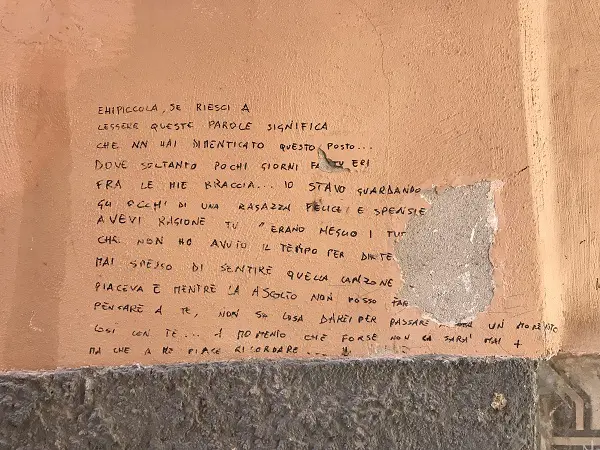 EHIPICCOLA, SE RIESCI A
LEGGERE QUESTE PAROLE SIGNIFICA
CHE NN HAI DIMENTICATO QUESTO POSTO...
DOVE SOLTANTO POCHI GIORNI FA TU ERI
FRA LE MIE BRACCIA... IO STAVO GUARDANDO
GLI OCCHI DI UNA RAGAZZA FELICE E SPENSIE
AVEVI RAGIONE TU "ERANO MEGLIO I TUO
CHE NON HO AVUTO IL TEMPO PER DIRTE
MAI SPESSO DI SENTIRE QUELLA CANZONE
PIACEVA E MENTRE LA ASCOLTO NON POSSO FAR
PENSARE A TE, NON SO COSA DAREI PER PASSARE UN MOMENTO
COSÌ CON TE... MOMENTO CHE FORSE NON CI SARÀ MAI +
MA CHE A ME PIACE RICORDARE...